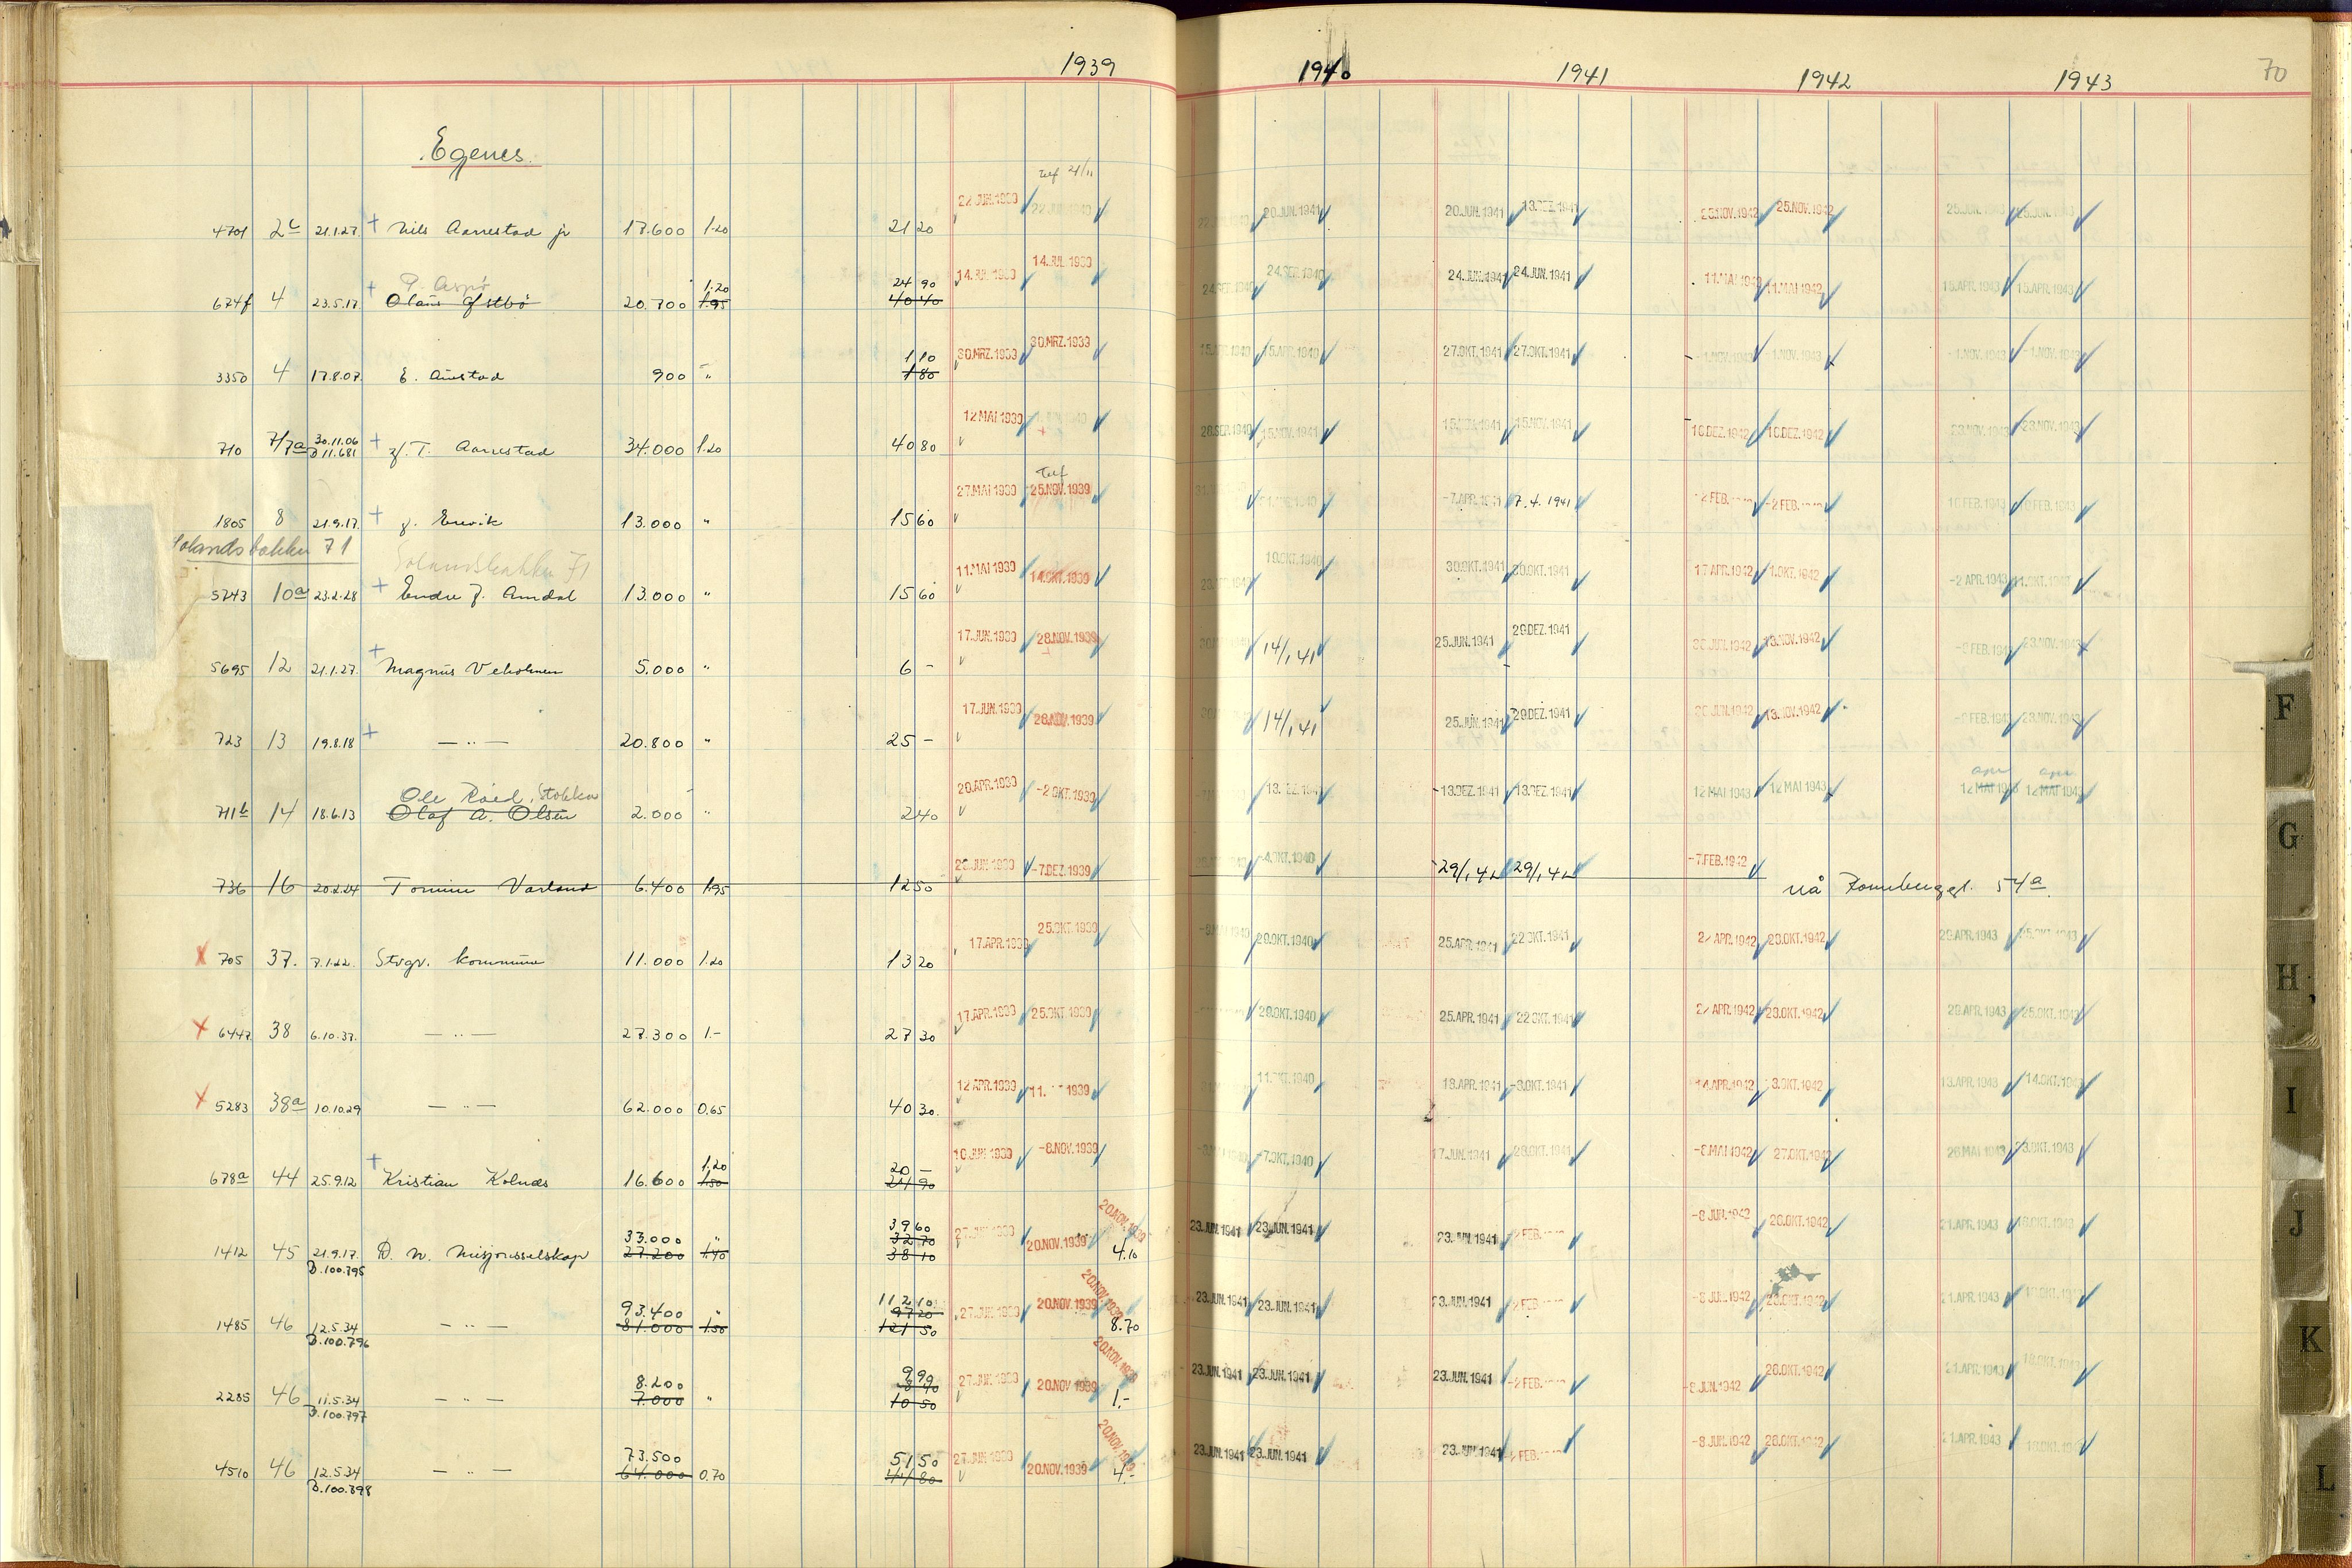 1939 1940 1941 1942 1943 70
Egenes.
Telf 21/11
22 JUN. 1939 22 JUN. 1940 20 JUN. 1941 20. JUN. 1941 13. DEZ. 1941 25. NOV. 1942 25. NOV. 1942 25. JUN. 1943 25. JUN. 1943
4701 2c 21.1.27. + Nils Aarrestad jr 17.600 1.20 21 20
P. Aspö 1.20 24 90 14. JUL 1939 14. JUL 1939 24. SEP. 1940 24. SEP. 1940 24. JUN. 1941 24. JUN. 1941 11. MAI 1942 11. MAI 1942 15. APR. 1943 15. APR. 1943
674f 4 23.5.17. + 20.700 1.95 40 40
1 10 30. MRZ. 1939 30. MRZ. 1939 15. APR. 1940 15. APR. 1940 27. OKT. 1941 27. OKT. 1941 -1. NOV. 1943 -1. NOV. 1943 -1. NOV. 1943 -1. NOV. 1943
3350 4 17.8.07. E. Austad 900 " 1 80
12 MAI 1939 28. SEP. 1940 15. NOV. 1941 15. NOV. 1941 15. NOV. 1941 16. DEZ. 1942 16. DEZ. 1942 23. NOV. 1943 23. NOV. 1943
710 7/7a 30.11.06 D 11.681 + T. Aarrestad 34.000 1.20 40 80
Telf
27. MAI 1939 25. NOV. 1939 -7. APR. 1941 7. 4. 1941 -2 FEB. -2 FEB. 10 FEB. 1943 10 FEB. 1943
1805 8 21.9.17. + 13.000 " 15 60
Solandsbakken 71
Solandsbakken 71
11. MAI 1939 14. OKT. 1939 19. OKT. 1940 30. OKT. 1941 30. OKT. 1941 17 APR. 1942 1. OKT. 1942 -2 APR. 1943 11. OKT.
5243 10a 23.2.28 + Endre J. Amdal 13.000 " 15 60
17. JUN. 1939 28. NOV. 1939 14/1 41 25. JUN. 1941 29 DEZ. 1941 JUN. 1942 13. NOV. 1942 FEB. 1943 23. NOV. 1943
5695 12 21.1.27. + Magnus Veholmen 5.000 " 6 –
17. JUN. 1939 28. NOV. 1939 14/1 41 25. JUN. 1941 29 DEZ. 1941 JUN. 1942 13. NOV. 1942 FEB. 1943 23. NOV. 1943
723 13 19.8.18 + — " — 20.800 " 25 –
Ole Røed, Stokka 20. APR. 1939 -2 OKT. 1939 13. DEZ. 1941 13. DEZ. 1941 12 MAI 1943 12 MAI 1943 12 MAI 1943 12 MAI 1943
711b 14 18.6.13 Olaf A. Olsen 2.000 " 2 40
JUN. 1939 -7. DEZ. 1939 -4. OKT. 1940 29/1 42 29/1 42 -7. FEB. 1942
736 16 20.2.24 Tomine Varland 6.400 1.95 12 50 nå 54a
17. APR. 1939 25. OKT. 1939 29. OKT. 1940 25. APR. 1941 22 OKT. 1941 APR. 1942 OKT. 1942 29. APR. 1943 25. OKT. 1943
x 705 37. 7.1.22. Stvgr. kommune 11.000 1.20 13 20
17. APR. 1939 25. OKT. 1939 29. OKT. 1940 25. APR. 1941 22 OKT. 1941 APR. 1942 OKT. 1942 29. APR. 1943 25. OKT. 1943
x 6447 38 6.10.37. — " — 27.300 1.- 27 30
12 APR. 1939 11. 1939 11. OKT. 1940 18. APR. 1941 OKT. 1941 14. APR. 1942 OKT. 1942 13. APR. 1943 14. OKT. 1943
x 5283 38a 10.10.29 — " — 62.000 0.65 40 30.
1.20 20 – 10 JUN 1939 -8. NOV. 1939 -7. OKT. 1940 17. JUN. 1941 OKT. 1941 -8. MAI 1942 27. OKT. 1942 26 MAI 1943 OKT. 1943
678a 44 25.9.12 + Kristian Kolnes 16.600 1.50 24 90
33.000 " 39 60 32 70 27. JUN. 1939 20. NOV. 1939 20. NOV. 1939 23. JUN. 1941 23. JUN. 1941 23. JUN. 1941 -2 FEB. -8 JUN. 1942 26. OKT. 1942 21. APR. 1943 18. OKT. 1943
1412 45 21.9.17. D. N. Misjonsselskap 27.200 1.40 38 10 4.10
D. 100.795
93.400 " 112 10 97 20 27. JUN. 1939 20. NOV. 1939 20. NOV. 1939 23. JUN. 1941 23. JUN. 1941 23. JUN. 1941 -2 FEB. -8 JUN. 1942 26. OKT. 1942 21. APR. 1943 18. OKT. 1943
1485 46 12.5.34 — " — 81.000 1.50 121 50 8.70
D. 100.796
8.200 9 90 8 40 27. JUN. 1939 20. NOV. 1939 20. NOV. 1939 23. JUN. 1941 23. JUN. 1941 23. JUN. 1941 -2 FEB. -8 JUN. 1942 26. OKT. 1942 21. APR. 1943 18. OKT. 1943
2285 46 11.5.34 — " — 7.000 " 10 50 1.-
D. 100.797
73.500 51 50 27. JUN. 1939 20. NOV. 1939 20. NOV. 1939 23. JUN. 1941 23. JUN. 1941 23. JUN. 1941 -2 FEB. -8 JUN. 1942 26. OKT. 1942 21. APR. 1943 18. OKT. 1943
4510 46 12.5.34 — " — 64.000 0.70 44 80 4.-
D. 100.798
F
G
H
I
J
K
L